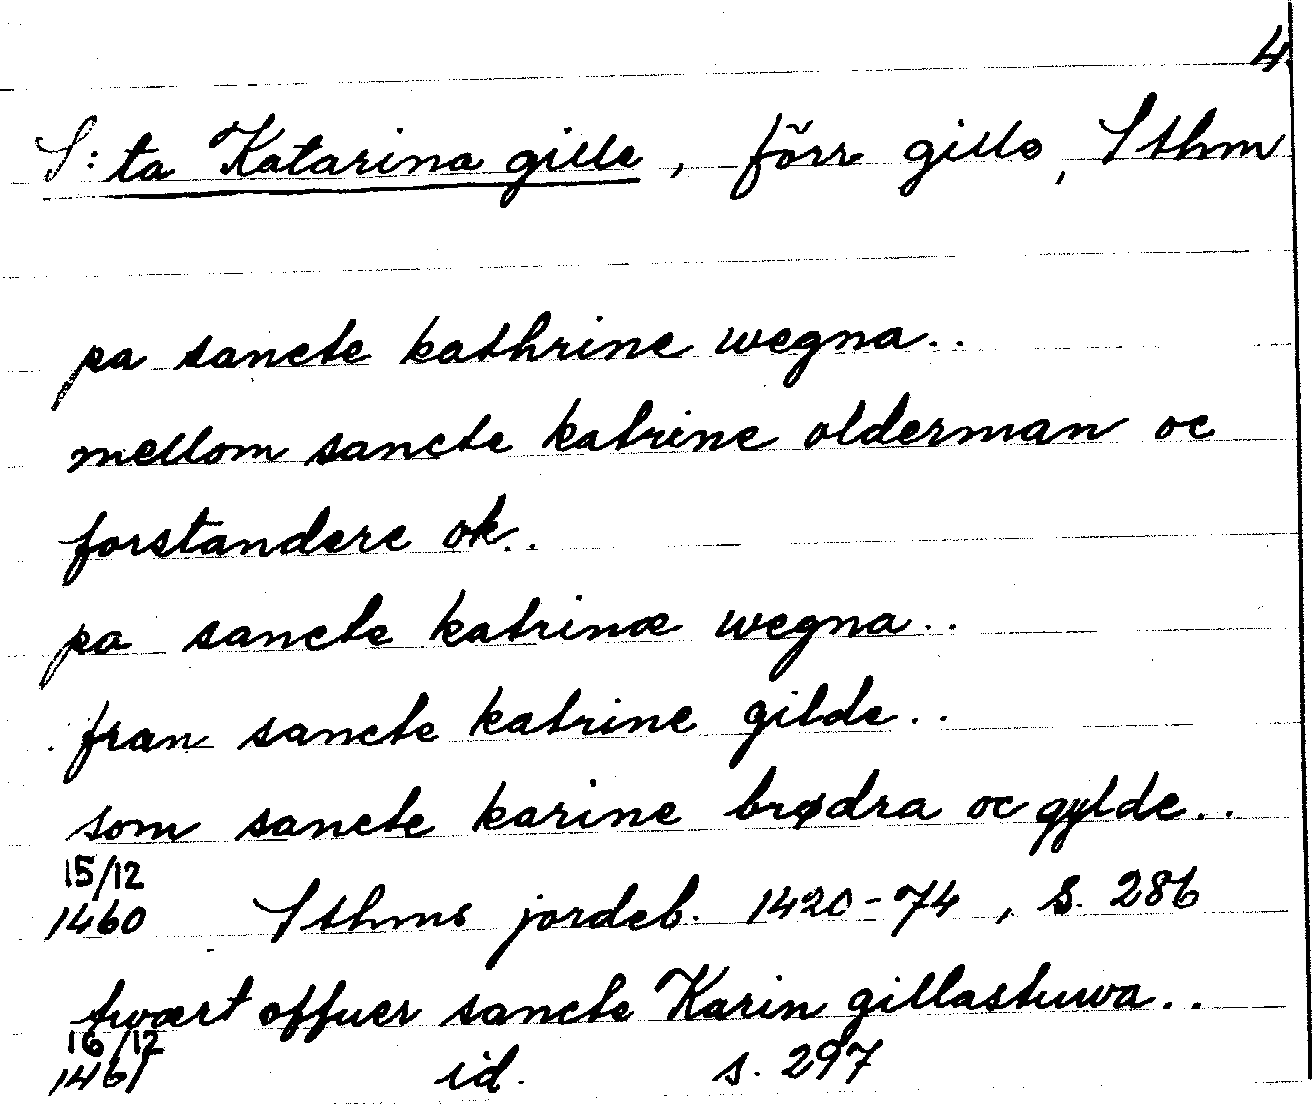 4.
S:ta Katarina gille, förr gille, Sthm
pa sancte kathrine wegna..
mellom sancte katrine olderman oc
forstandere ok..
pa sancte katrinæ wegna..
fran sancte katrine gilde..
som sancte karine brødra oc gylde..
15/12
1460 Sthms jordeb. 1420-74, s. 286
twært offuer sancte Karin gillastuwa..
16/12
1461 id. s. 297